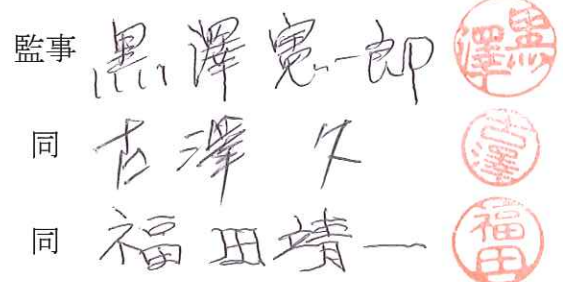 監事 黒澤寛一郎 黒澤
同 古澤久 古澤
同 福田靖一 福田